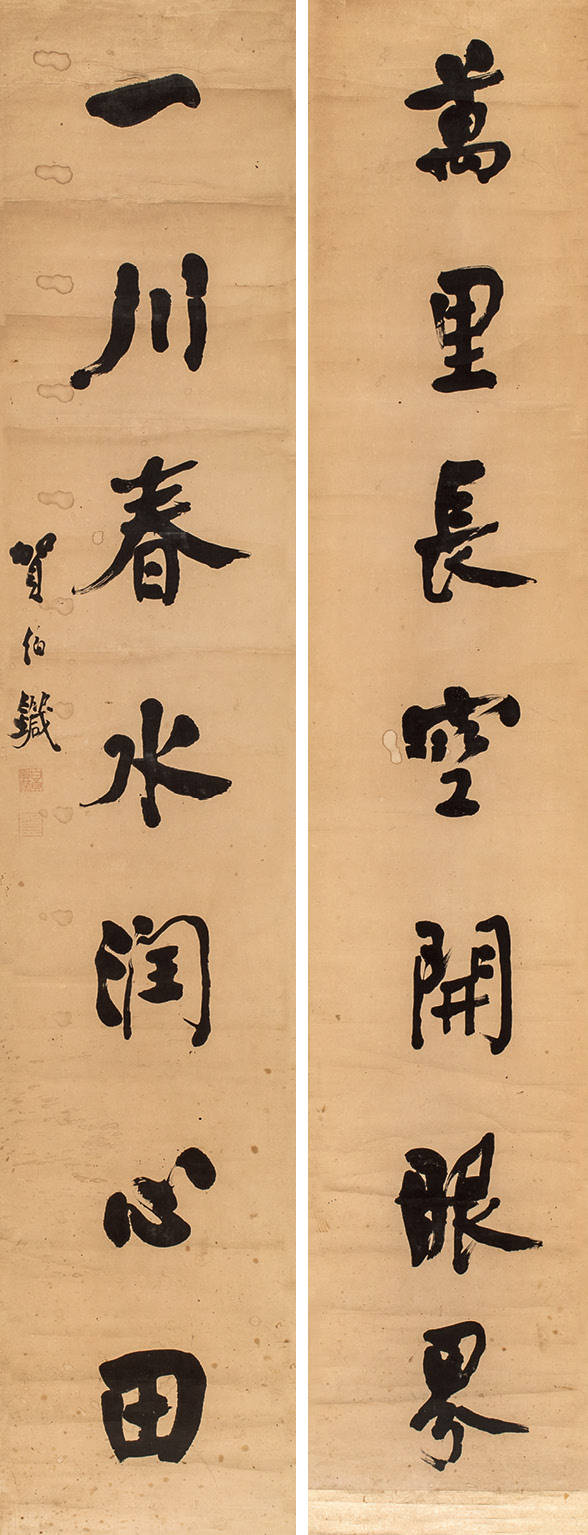 萬里長空開眼界
一川春水潤心田
賀伯鍼